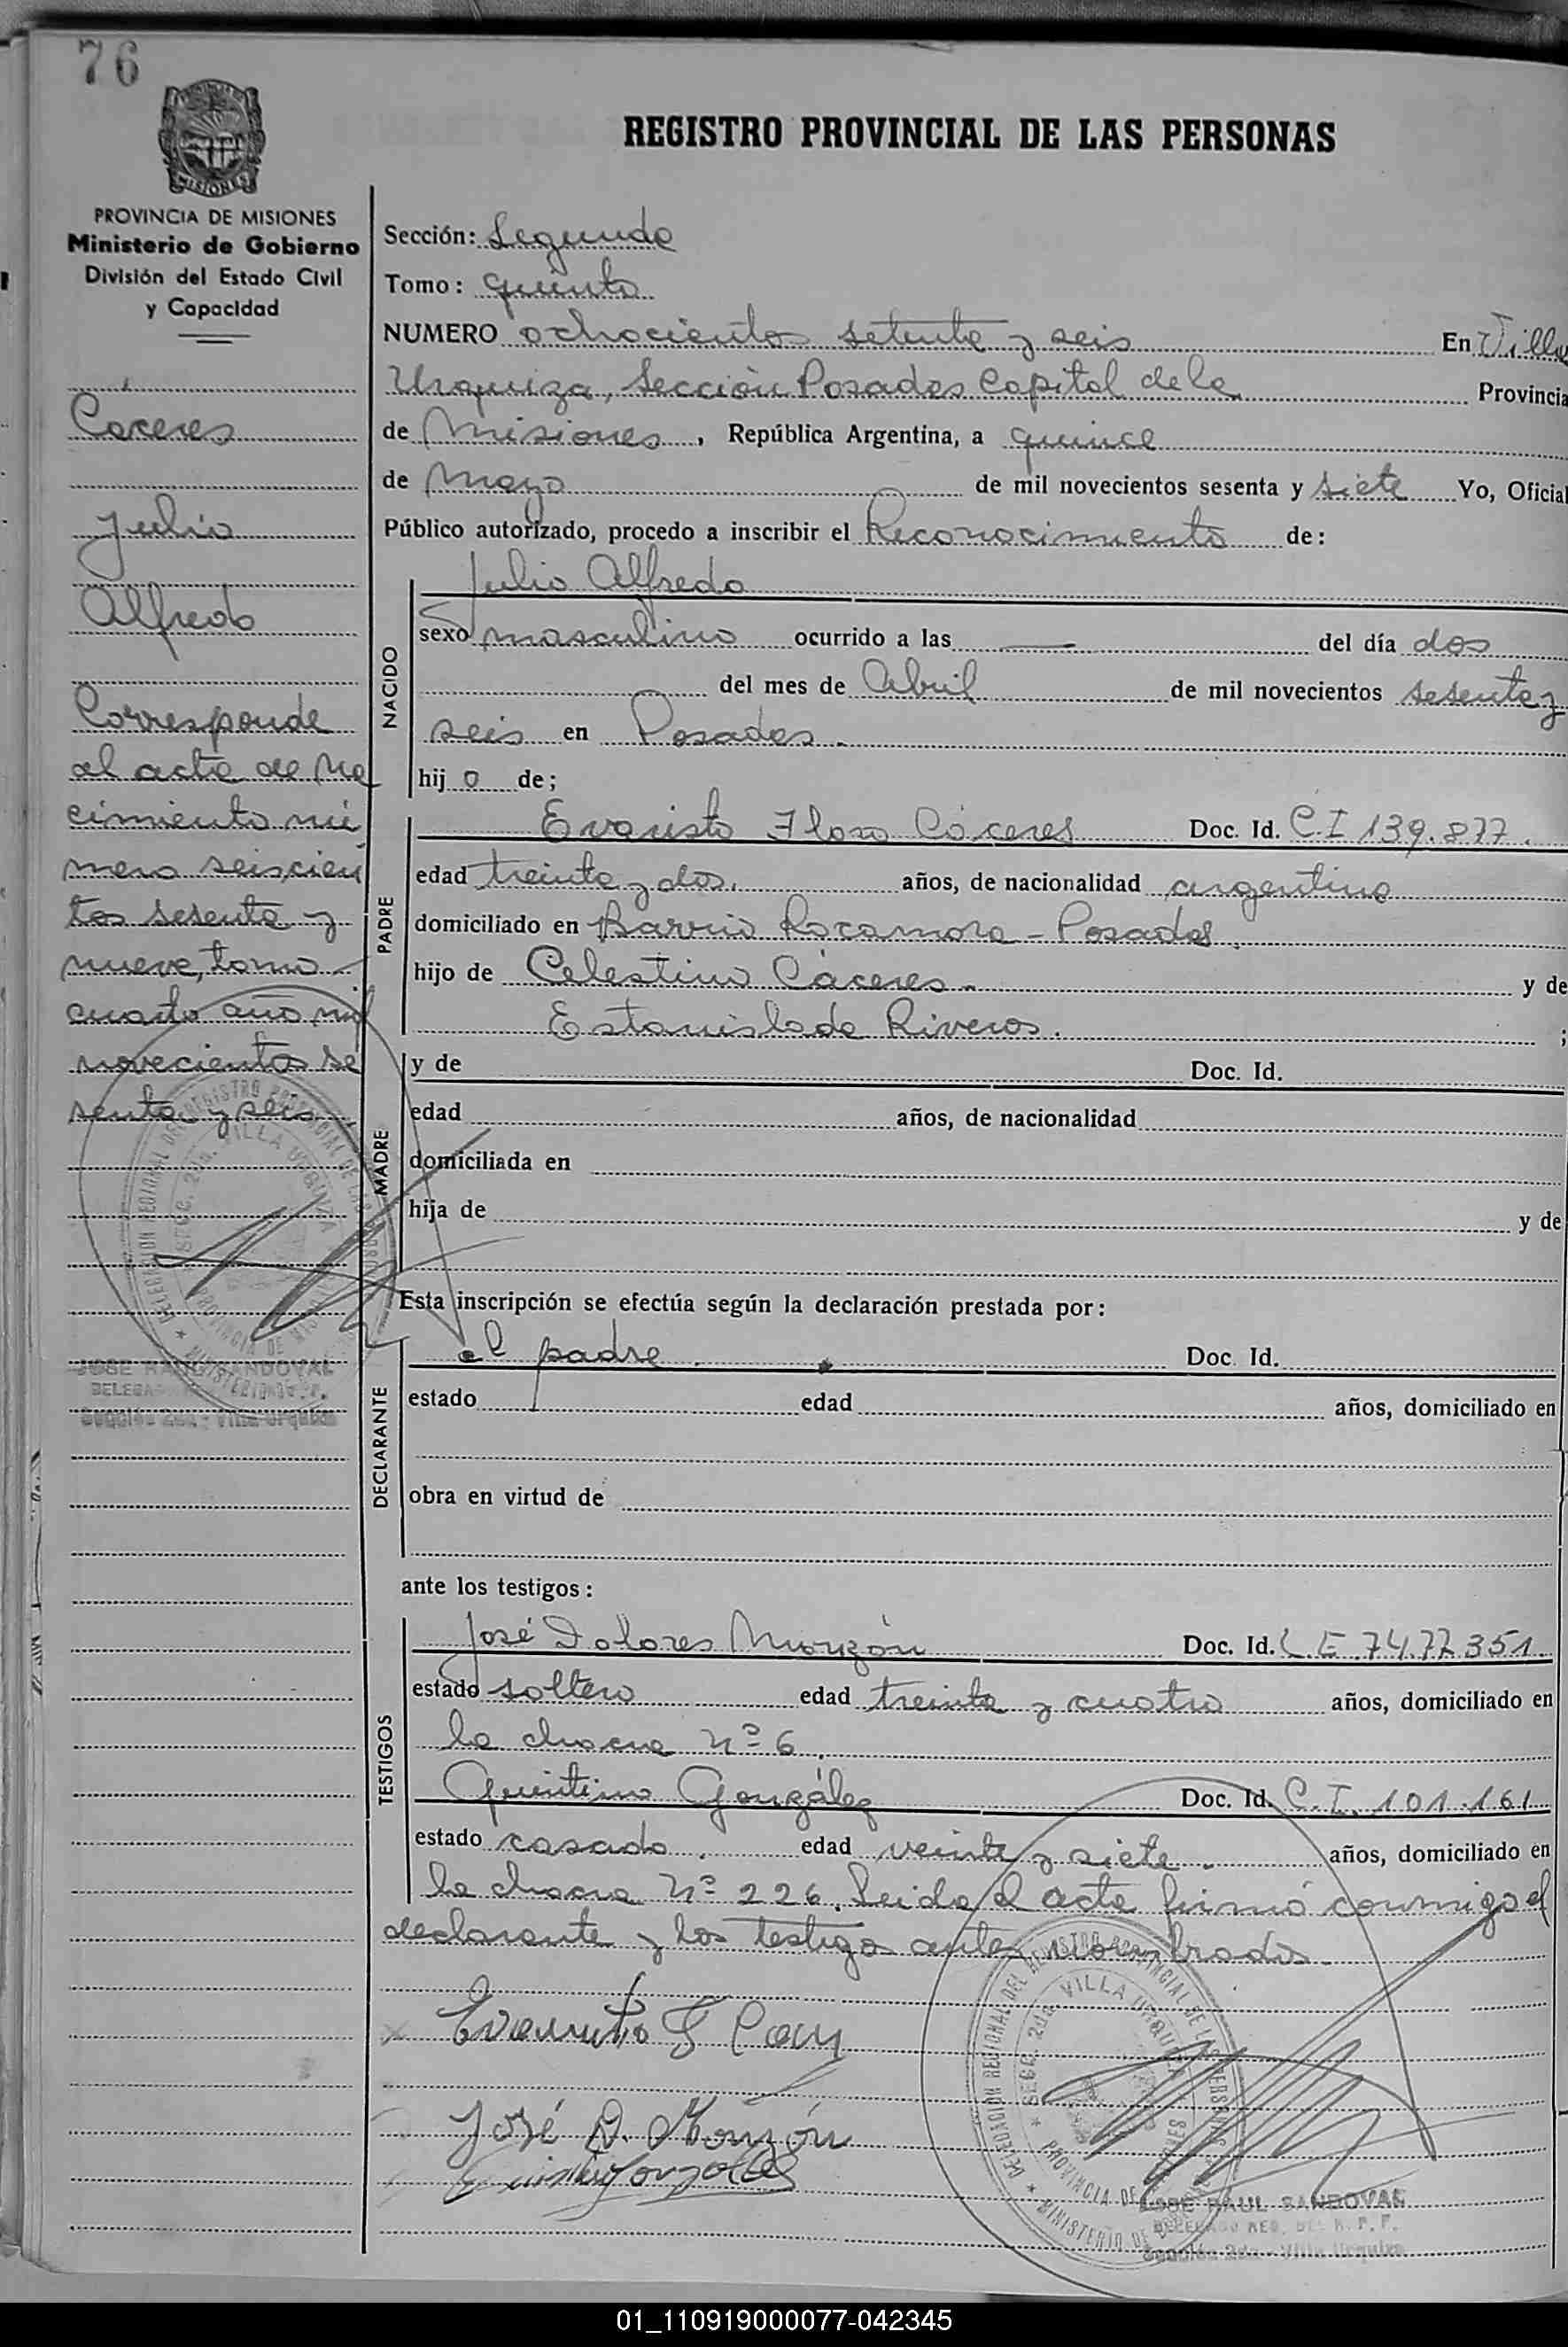 76
REGISTRO PROVINCIAL DE LAS PERSONAS
MISIONES
PROVINCIA DE MISIONES
Ministerio de Gobierno
División del Estado Civil
y Capacidad
Caceres
Julio
Alfredo
Corresponde
al acta de Na
cimiento nú
mero seiscien
tos sesenta y
nueve, tomo
cuarto año mil
novecientos se
senta y seis.
JOSE RAUL SANDOVAL
Sección 2da - Villa Urquiza
Sección: Segunda
Tomo: quinto
NUMERO ochocientos setenta y seis En Villa
Urquiza, Sección Posadas Capital de la Provincia
de Misiones, República Argentina, a quince
de Mayo de mil novecientos sesenta y siete Yo, Oficial
Público autorizado, procedo a inscribir el Reconocimiento de:
Julio Alfredo
NACIDO
sexo masculino ocurrido a las — del día dos
del mes de Abril de mil novecientos sesenta y
seis en Posadas.
hijo de;
PADRE
Evaristo Floro Cáceres Doc. Id. C.I 139.877.
edad treinta y dos. años, de nacionalidad argentina
domiciliado en Barrio Rocamora - Posadas.
hijo de Celestino Cáceres y de
Estanislada Riveros. ;
MADRE
y de Doc. Id.
edad años, de nacionalidad
domiciliada en
hija de y de
Esta inscripción se efectúa según la declaración prestada por:
DECLARANTE
el padre. Doc. Id.
estado edad años, domiciliado en
obra en virtud de
ante los testigos:
TESTIGOS
José Dolores Monzón Doc. Id. L.E. 7477.351.
estado soltero edad treinta y cuatro años, domiciliado en
la chacra Nº 6.
Quintino González Doc. Id. C.I. 101.161
estado casado. edad veinte y siete. años, domiciliado en
la chacra Nº 226. Leida el acta firmó conmigo el
declarante y los testigos antes nombrados.
José D. Monzón
DELEGACION REGIONAL DEL REGISTRO PROVINCIAL DE LAS PERSONAS
SECC. 2da. VILLA URQUIZA
PROVINCIA DE MISIONES
MINISTERIO DE GOBIERNO
JOSE RAUL SANDOVAL
DELEGADO REG. DEL R. P. P.
Sección 2da - Villa Urquiza
01_110919000077-042345